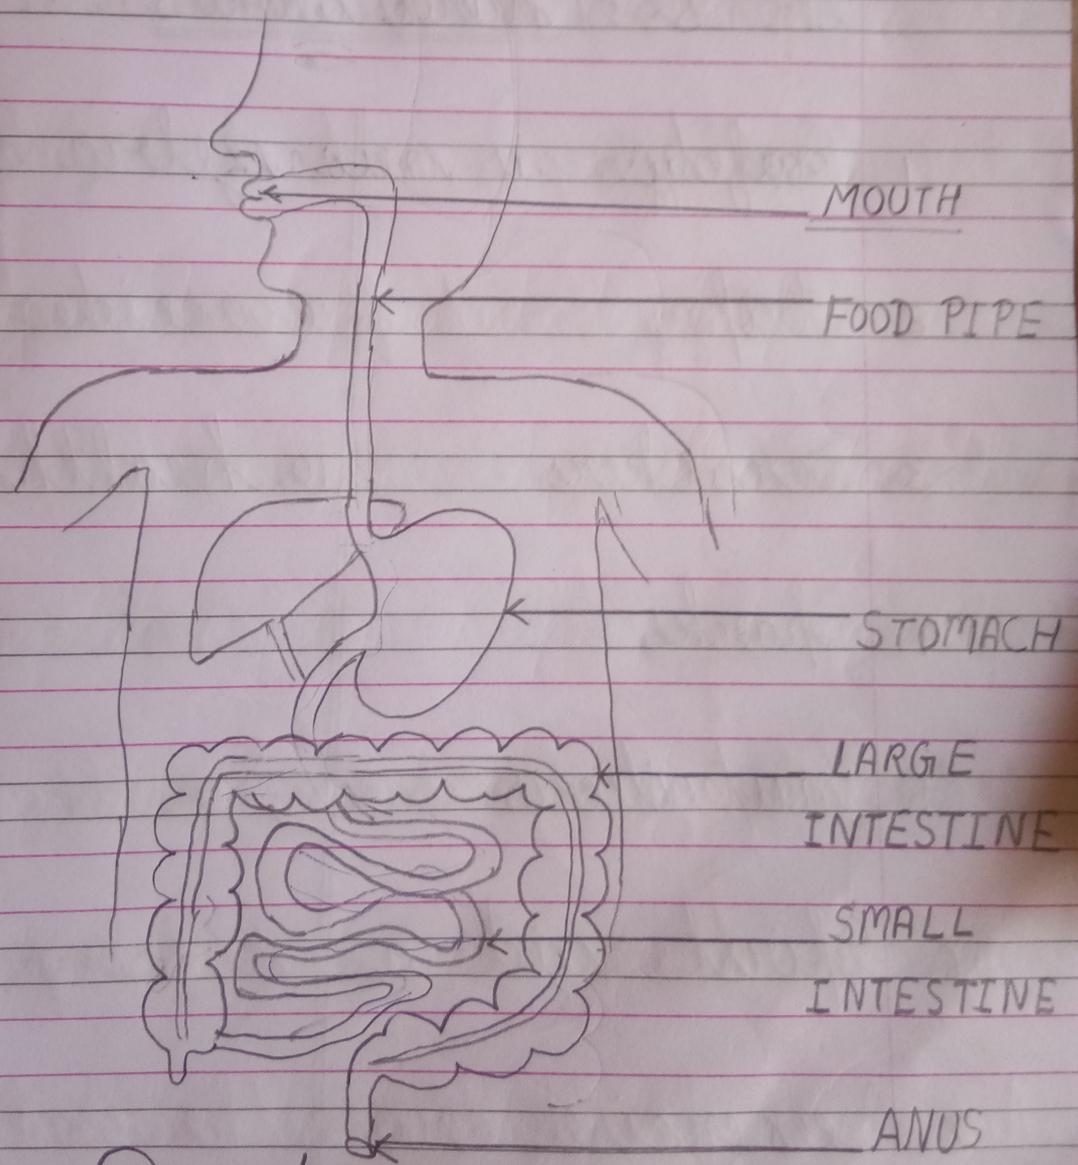 MOUTH
FOOD PIPE
STOMACH
LARGE
INTESTINE
SMALL
INTESTINE
ANUS